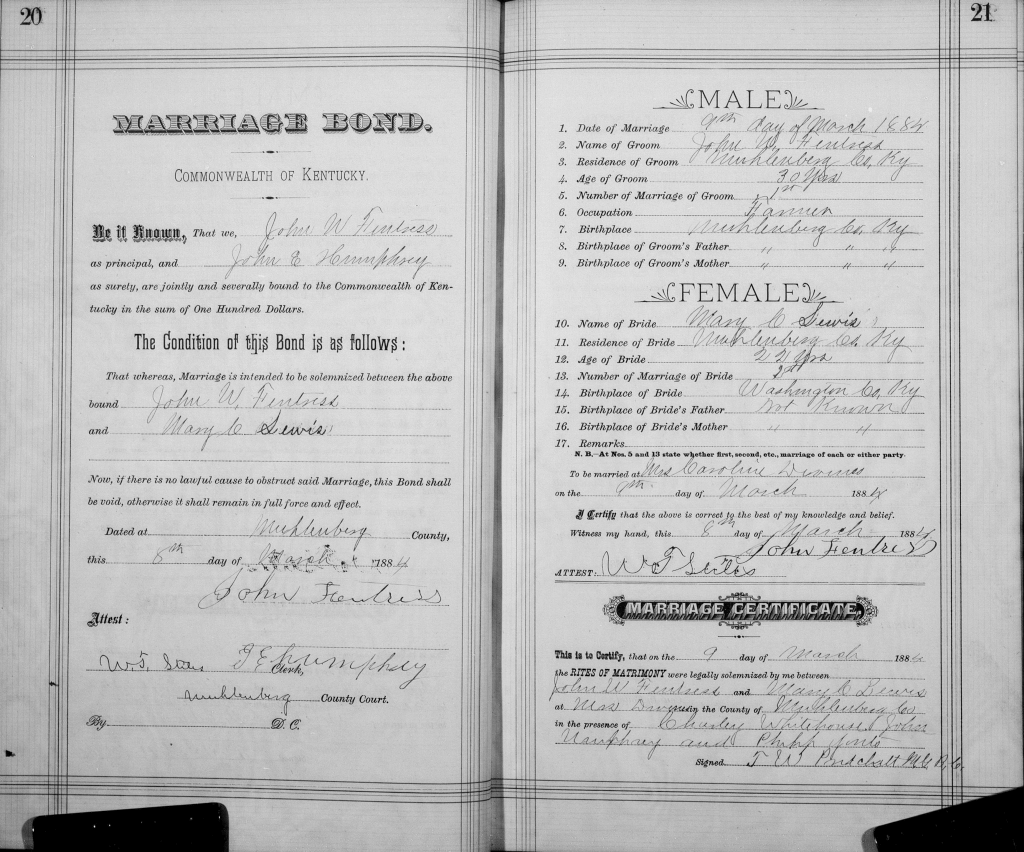 20
MARRIAGE BOND.
COMMONWEALTH OF KENTUCKY.
Be it Known, That we, John W Fentress
as principal, and John E Humphrey
as surety, are jointly and severally bound to the Commonwealth of Ken-
tucky in the sum of One Hundred Dollars.
The Condition of this Bond is as follows:
That whereas, Marriage is intended to be solemnized between the above
bound John W. Fentress
and Mary C Lewis
Now, if there is no lawful cause to obstruct said Marriage, this Bond shall
be void, otherwise it shall remain in full force and effect.
Dated at Muhlenberg County,
this 8th day of March 1884
John Fentress
Attest:
W.T. J E Humphrey
Clerk,
Muhlenberg County Court.
By D. C.
21
MALE
1. Date of Marriage 9th day of March 1884
2. Name of Groom John W. Fentress
3. Residence of Groom Muhlenberg Co, Ky
4. Age of Groom 30 Yrs
5. Number of Marriage of Groom 1st
6. Occupation Farmer
7. Birthplace Muhlenberg Co, Ky
8. Birthplace of Groom's Father " " "
9. Birthplace of Groom's Mother " " "
FEMALE
10. Name of Bride Mary C Lewis
11. Residence of Bride Muhlenberg Co. Ky
12. Age of Bride 22 Yrs
13. Number of Marriage of Bride
14. Birthplace of Bride Washington Co, Ky
15. Birthplace of Bride's Father Not Known
16. Birthplace of Bride's Mother " "
17. Remarks
N. B.—At Nos. 5 and 13 state whether first, second, etc., marriage of each or either party.
To be married at Mrs Caroline
on the 9th day of March 1884
I Certify that the above is correct to the best of my knowledge and belief.
Witness my hand, this 8th day of March 1884
John Fentress
ATTEST: W T
MARRIAGE CERTIFICATE.
This is to Certify, that on the 9 day of March 1884
the RITES OF MATRIMONY were legally solemnized by me between
John W Fentress and Mary C Lewis
at Mrs in the County of Muhlenberg Co
in the presence of Charley Whitehouse, John
Humphrey and Philip
Signed J W Pritchatt